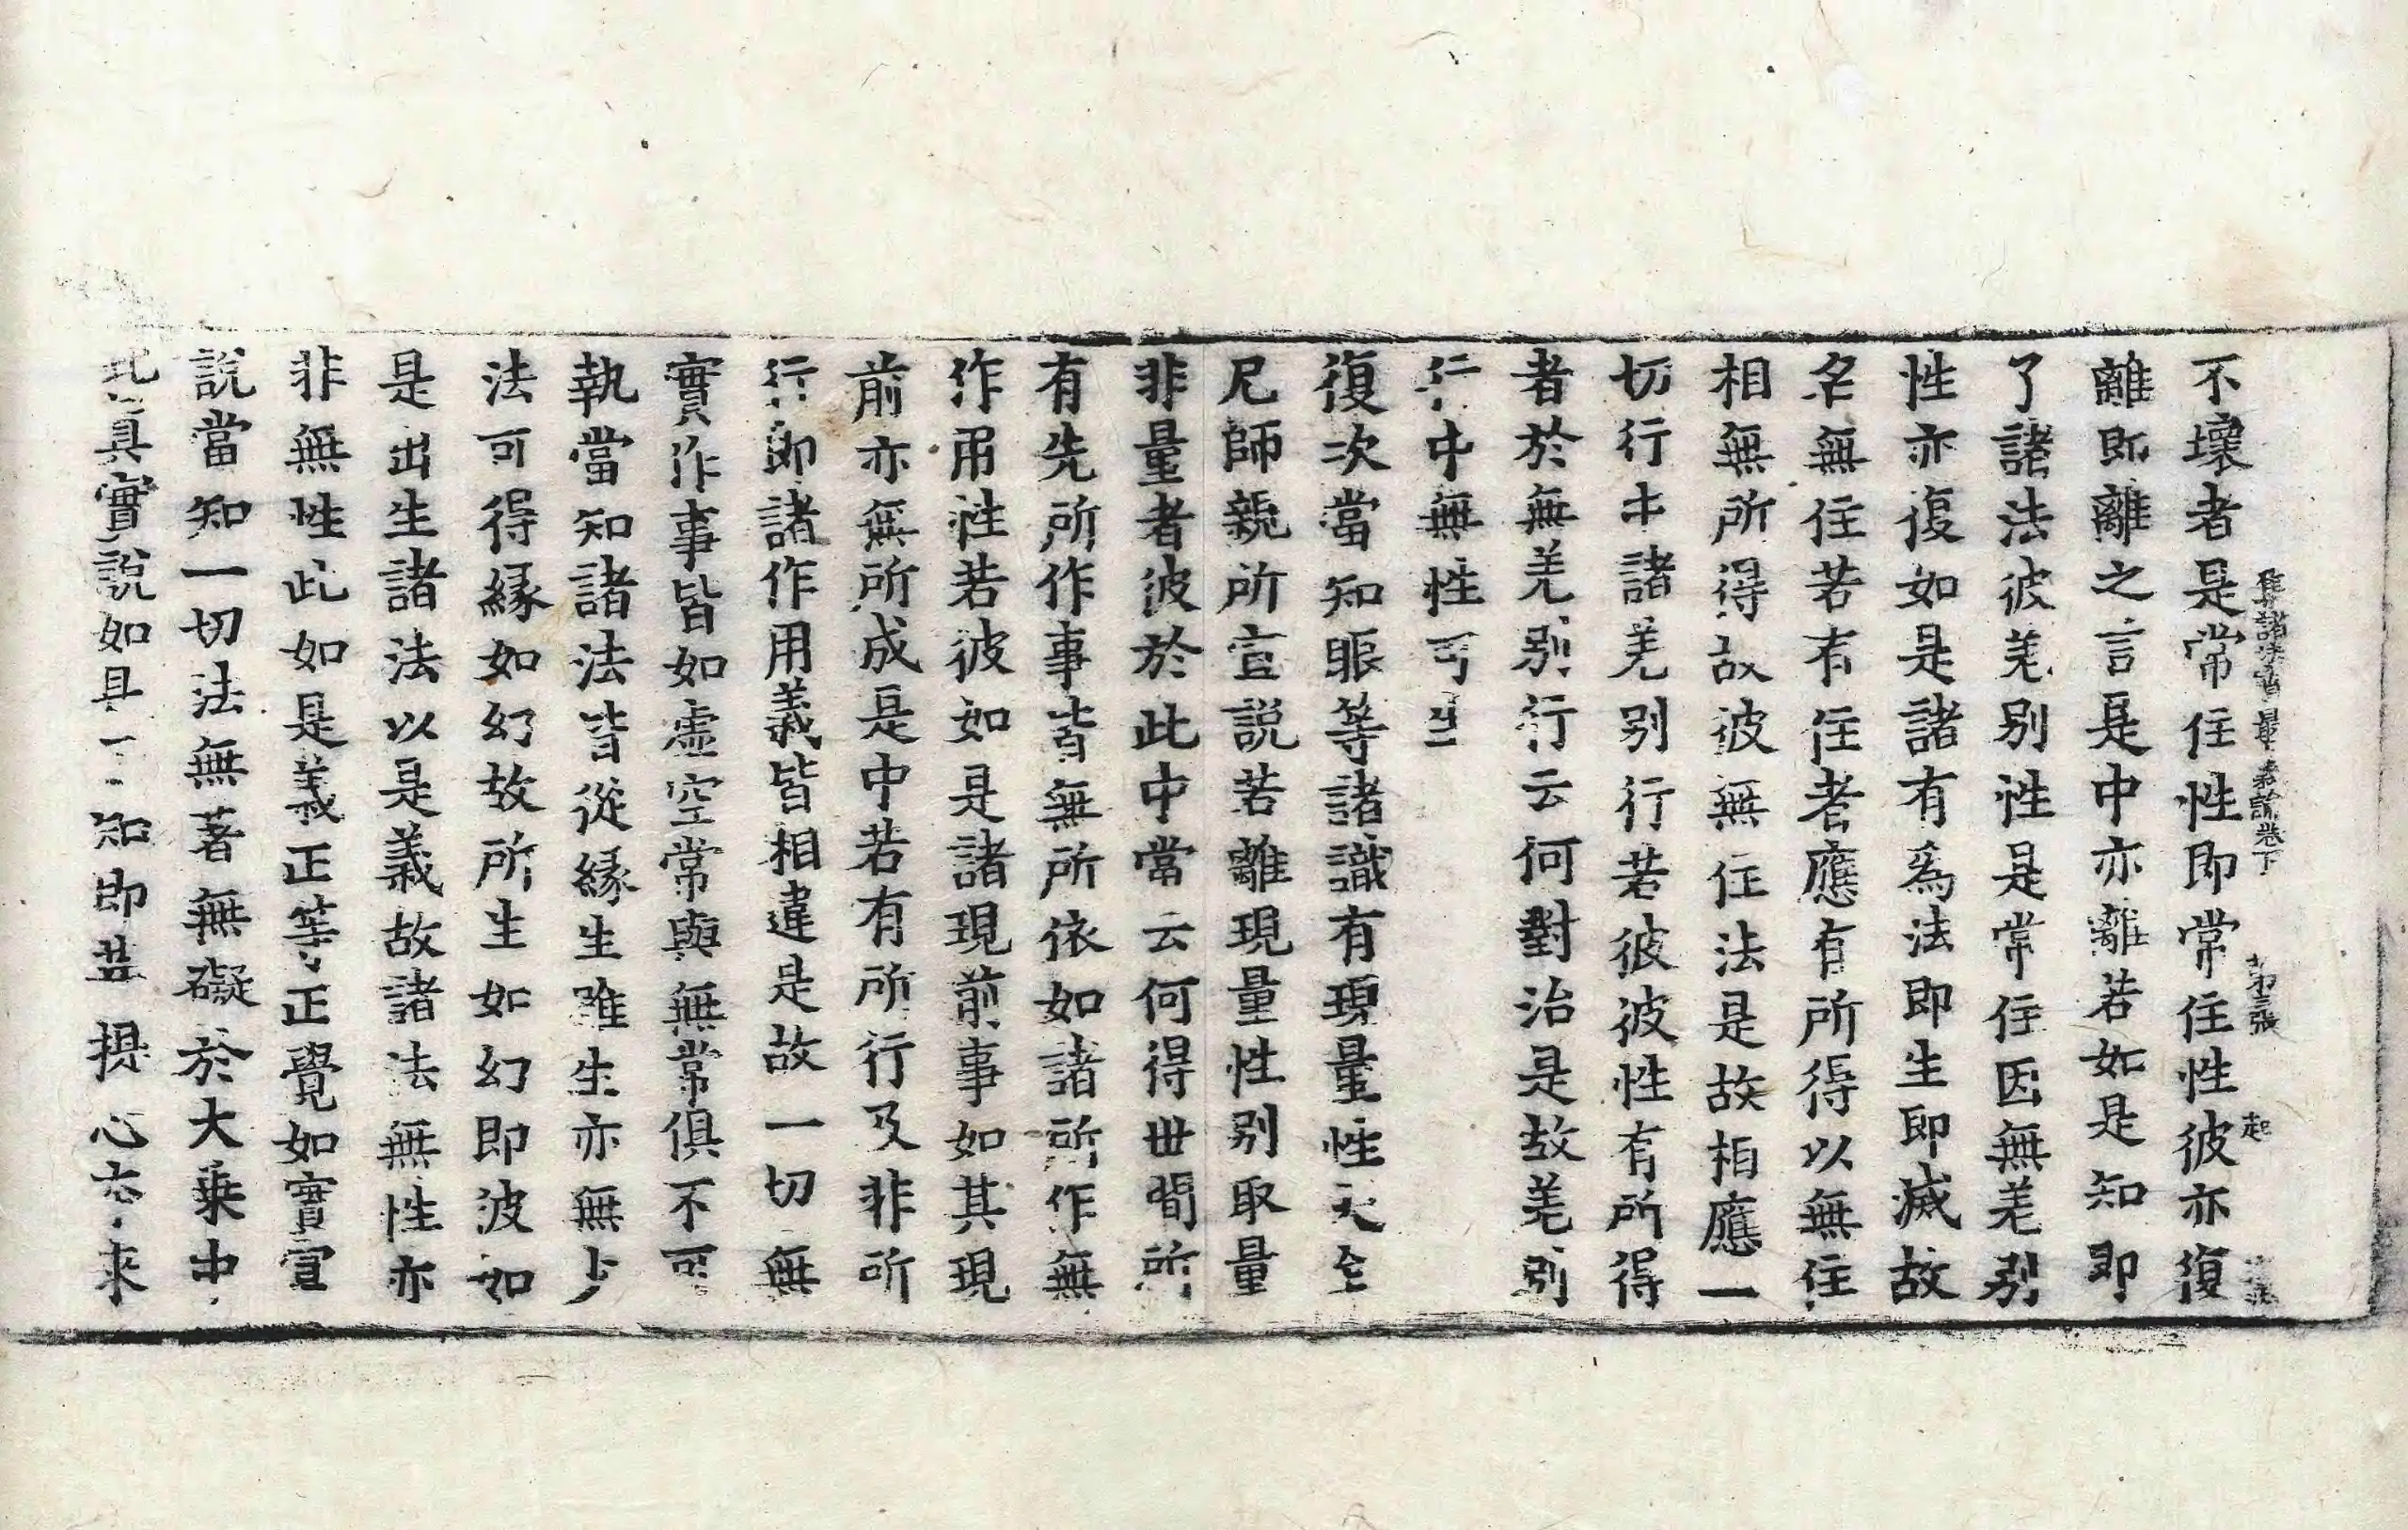 集諸法寶最上義論卷下 第三張 起
不壞者是常住性即常住性彼亦復
離即離離之言是中亦離若如是知即
了諸法彼差別性是常住因無差別
性亦復如是諸有為法即生即滅故
名無住若有住者應有所得以無住
相無所得故彼無住法是故相應一
切行中諸差別行若彼彼性有所得
者於無差別行云何對治是故差別
行中無性可生
復次當知眼等諸識有現量性大金
尼師親所宣說若離現量性別取量
非量者彼於此中當云何得世間所
有先所作事皆無所依如諸所作無
作用性若彼如是諸現前事如其現
前亦無所成是中若有所行及非所
行即諸作用義皆相違是故一切無
實作事皆如虛空常與無常俱不可
執當知諸法皆從緣生雖生亦無少
法可得緣如幻故所生如幻即彼如
是出生諸法以是義故諸法無性亦
非無性此如是義正等正覺如實宣
說當知一切法無著無礙於大乘中
此真實說如具知即菩提心亦來